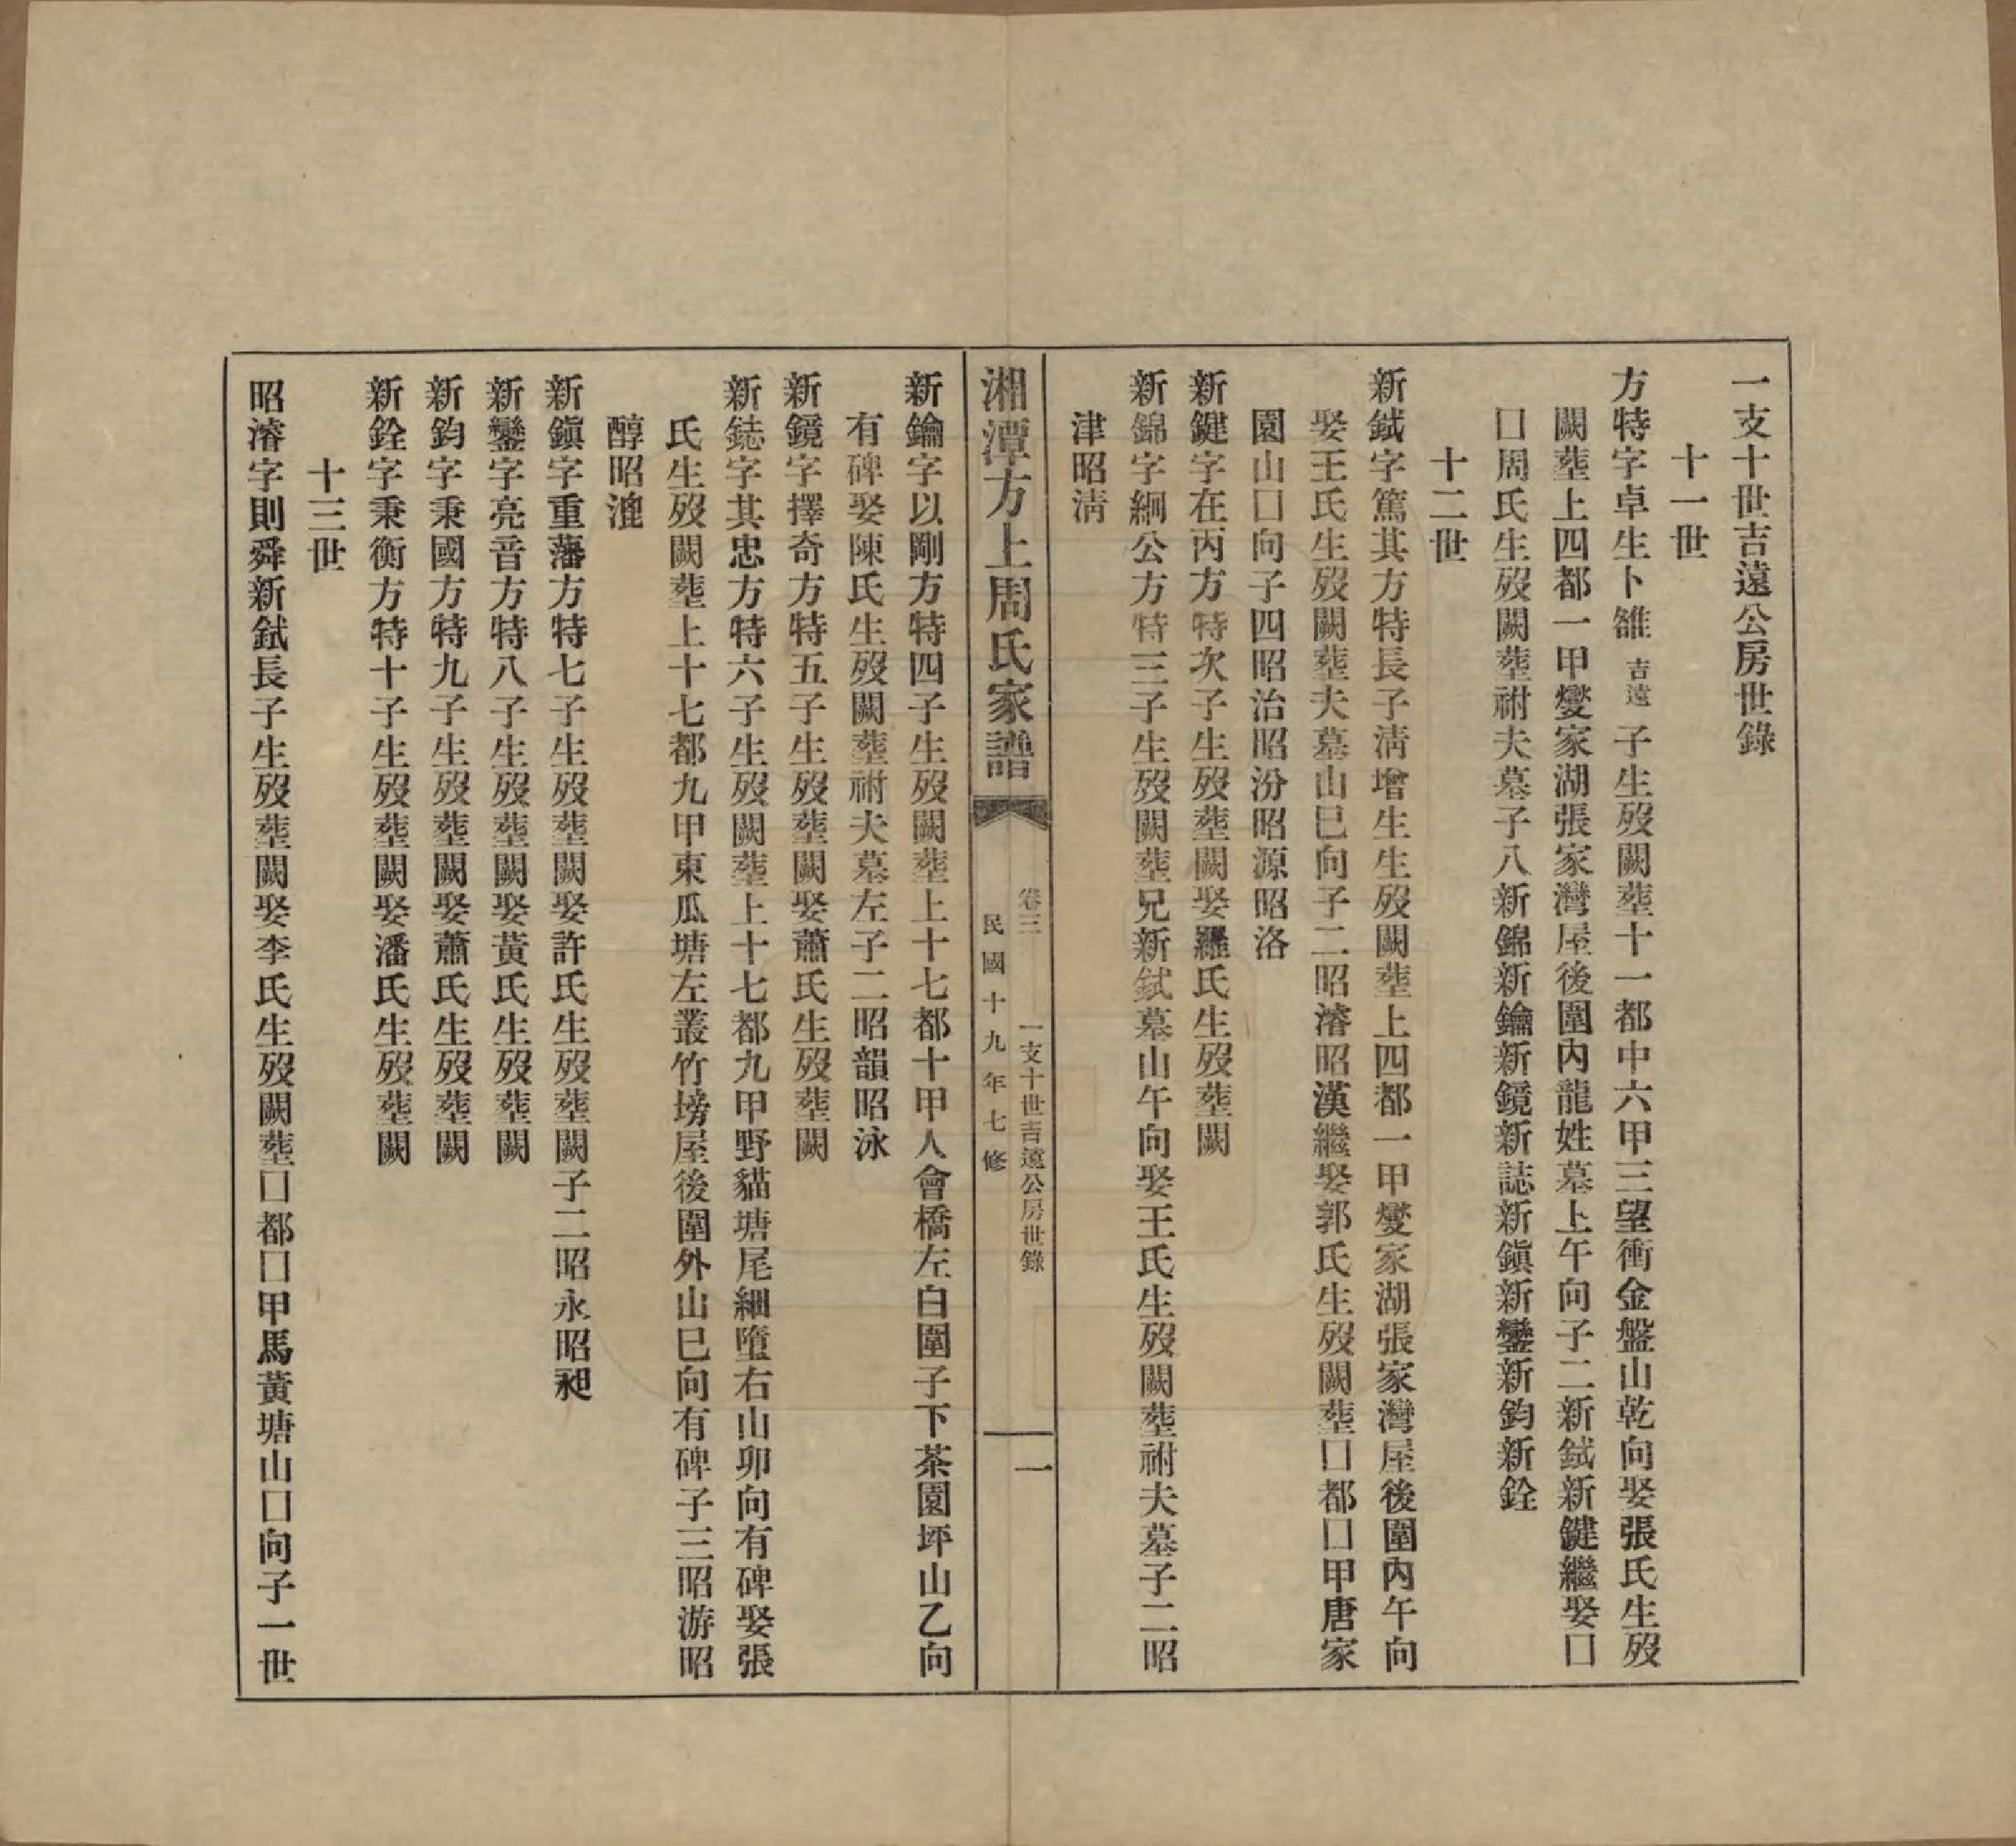 一支十世吉遠公房世錄
十一世
方特字卓生卜雒吉遠子生歿闕塟十一都中六甲三望衝金盤山乾向娶張氏生歿
闕塟上四都一甲燮家湖張家灣屋後圍內龍姓墓上午向子二新鉽新鍵繼娶囗
囗周氏生歿闕塟祔夫墓子八新錦新鑰新鏡新誌新鎭新鑾新鈞新銓
十二世
新鉽字篤其方特長子淸增生生歿闕塟上四都一甲燮家湖張家灣屋後圍內午向
娶王氏生歿闕塟夫墓山巳向子二昭濬昭漢繼娶郭氏生歿闕塟囗都囗甲唐家
園山囗向子四昭治昭汾昭源昭洛
新鍵字在丙方特次子生歿塟闕娶羅氏生歿塟闕
新錦字綱公方特三子生歿闕塟兄新鉽墓山午向娶王氏生歿闕塟祔夫墓子二昭
津昭淸
湘潭方上周氏家譜
卷三
一支十世吉遠公房世錄
民國十九年七修
一
新鑰字以剛方特四子生歿闕塟上十七都十甲人會橋左白圍子下茶園坪山乙向
有碑娶陳氏生歿闕塟祔夫墓左子二昭韻昭泳
新鏡字擇奇方特五子生歿塟闕娶蕭氏生歿塟闕
新鋕字其忠方特六子生歿闕塟上十七都九甲野貓塘尾細墮右山卯向有碑娶張
氏生歿闕塟上十七都九甲東瓜塘左叢竹塝屋後圍外山巳向有碑子三昭游昭
醇昭滝
新鎭字重藩方特七子生歿塟闕娶許氏生歿塟闕子二昭永昭昶
新鑾字亮音方特八子生歿塟闕娶黃氏生歿塟闕
新鈞字秉國方特九子生歿塟闕娶蕭氏生歿塟闕
新銓字秉衡方特十子生歿塟闕娶潘氏生歿塟闕
十三世
昭濬字則舜新鉽長子生歿塟闕娶李氏生歿闕塟囗都囗甲馬黃塘山囗向子一世